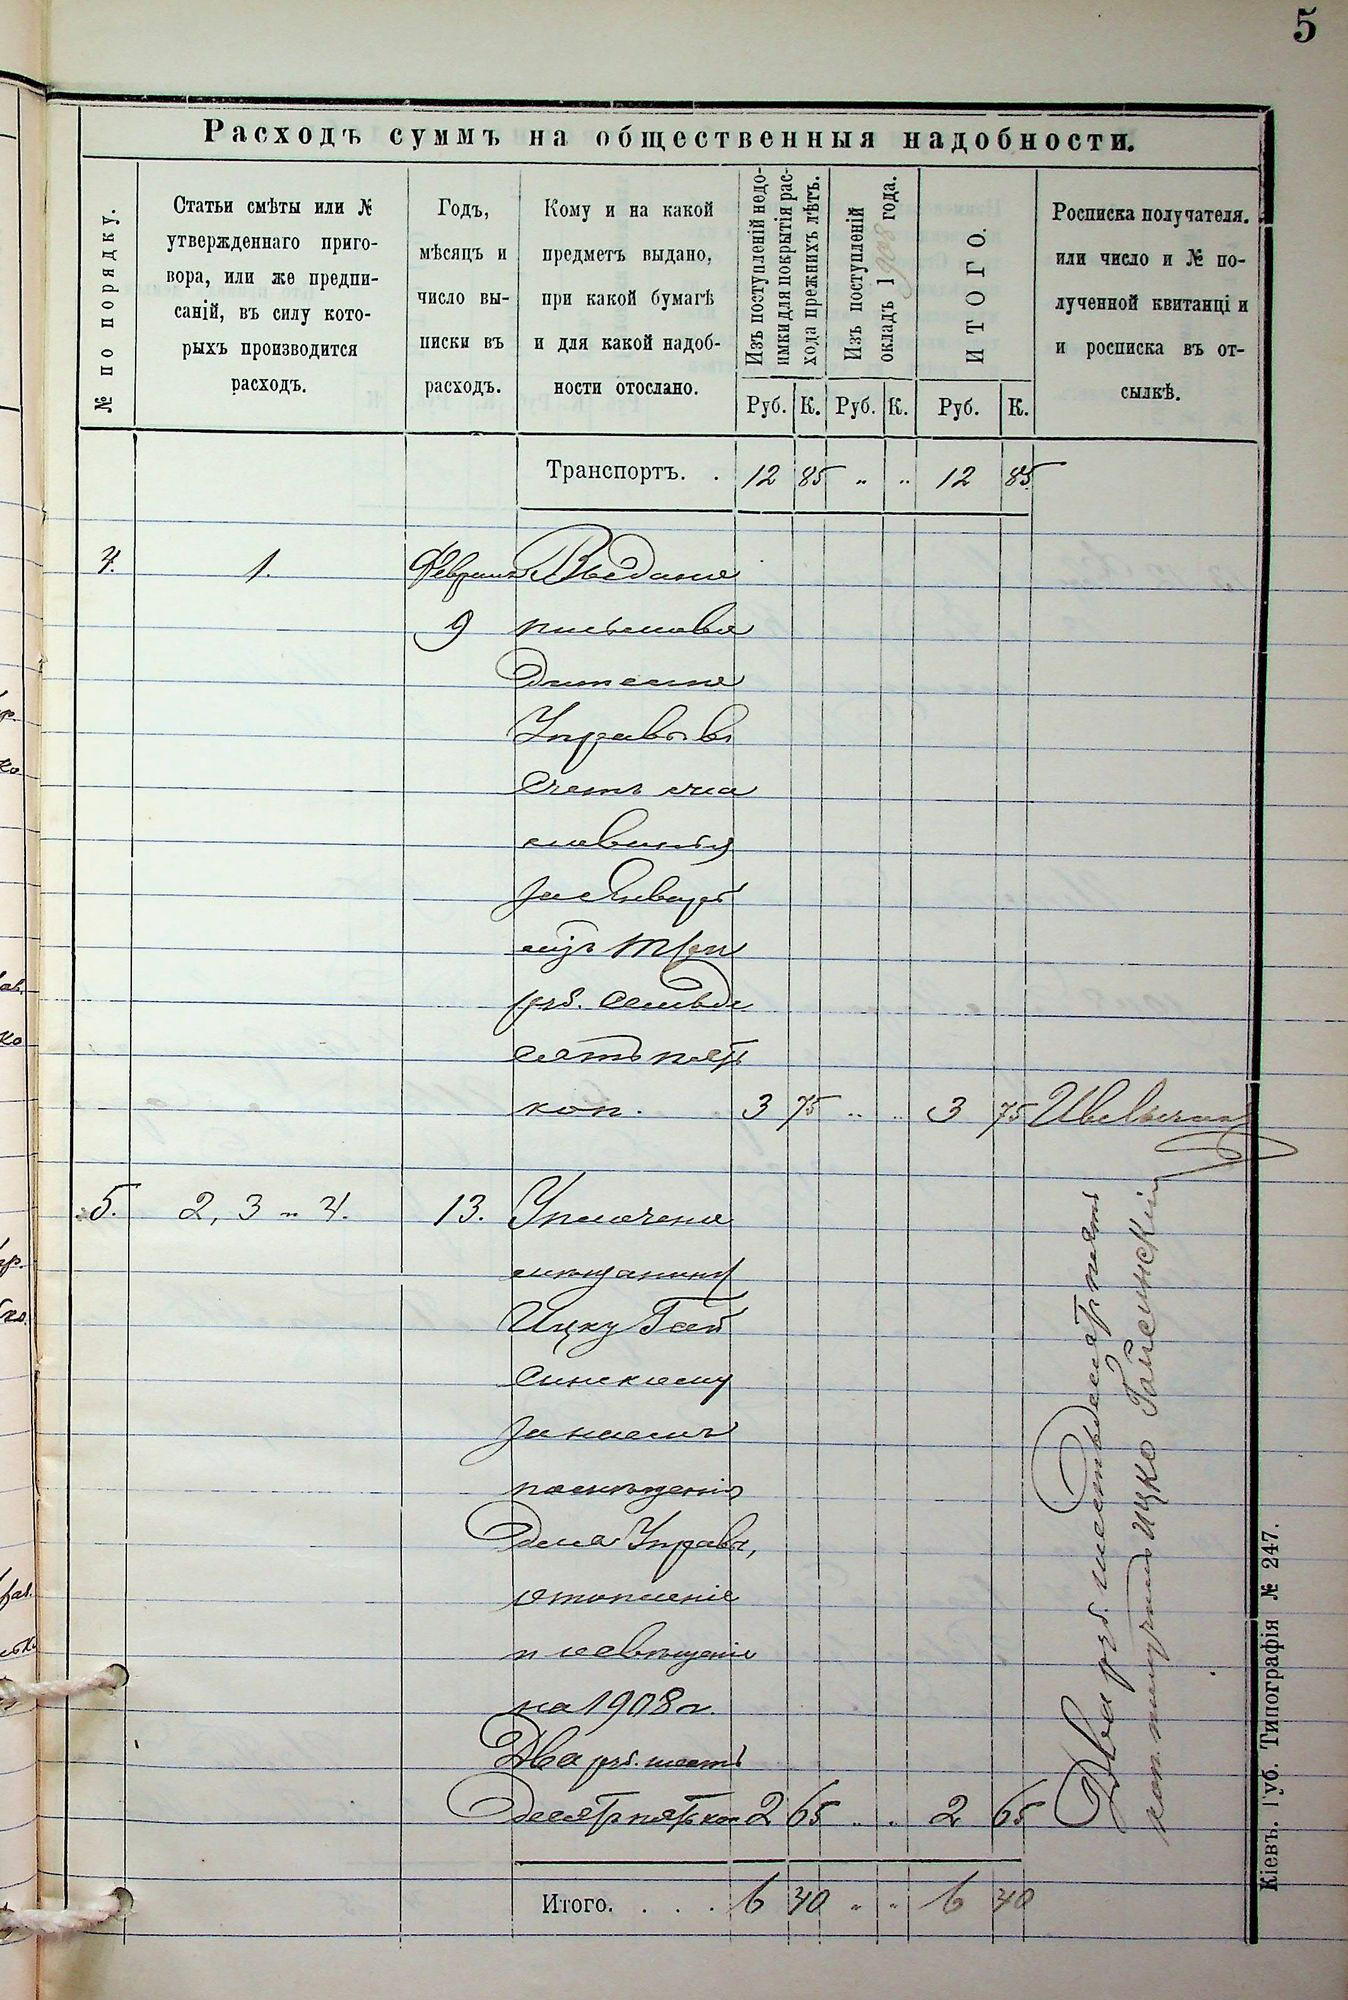 5
Расходъ суммъ на общественныя надобности.
№ по порядку.
Статьи смѣты или №
утвержденнаго приго-
вора, или же предпи-
саній, въ силу кото-
рыхъ производится
расходъ.
Годъ,
мѣсяцъ и
число вы-
писки въ
расходъ.
Кому и на какой
предметъ выдано,
при какой бумагѣ
и для какой надоб-
ности отослано.
Изъ поступленій недо-
имки для покрытія рас-
хода прежнихъ лѣтъ.
Изъ поступленій
окладъ 1908 года.
ИТОГО.
Росписка получателя.
или число и № по-
лученной квитанці и
и росписка въ от-
сылкѣ.
Руб. К. Руб. К. Руб. К.
Транспортъ. . 12 85 " " 12 85
4. 1. Февраля Выдано
9 письмово
дителю
Управы въ
счетъ
жалованья
за Январь
мцъ три
руб. семьде
сятъ пять
коп. 3 75 " " 3 75
5. 2, 3 и 4. 13. Уплачено
мѣщанину
Ицку Гай
синскому
за наемъ
помѣщенія
для Управы,
отопленіе
и освѣщеніе
на 1908 г.
Два руб. шесть
десятъ пять коп 2 65 " " 2 65
Два руб. шестьдесятъ пять
коп. получилъ Ицко Гайсинскій
Итого. . . . 6 40 " " 6 40
Кіевъ. Губ. Типографія № 247.